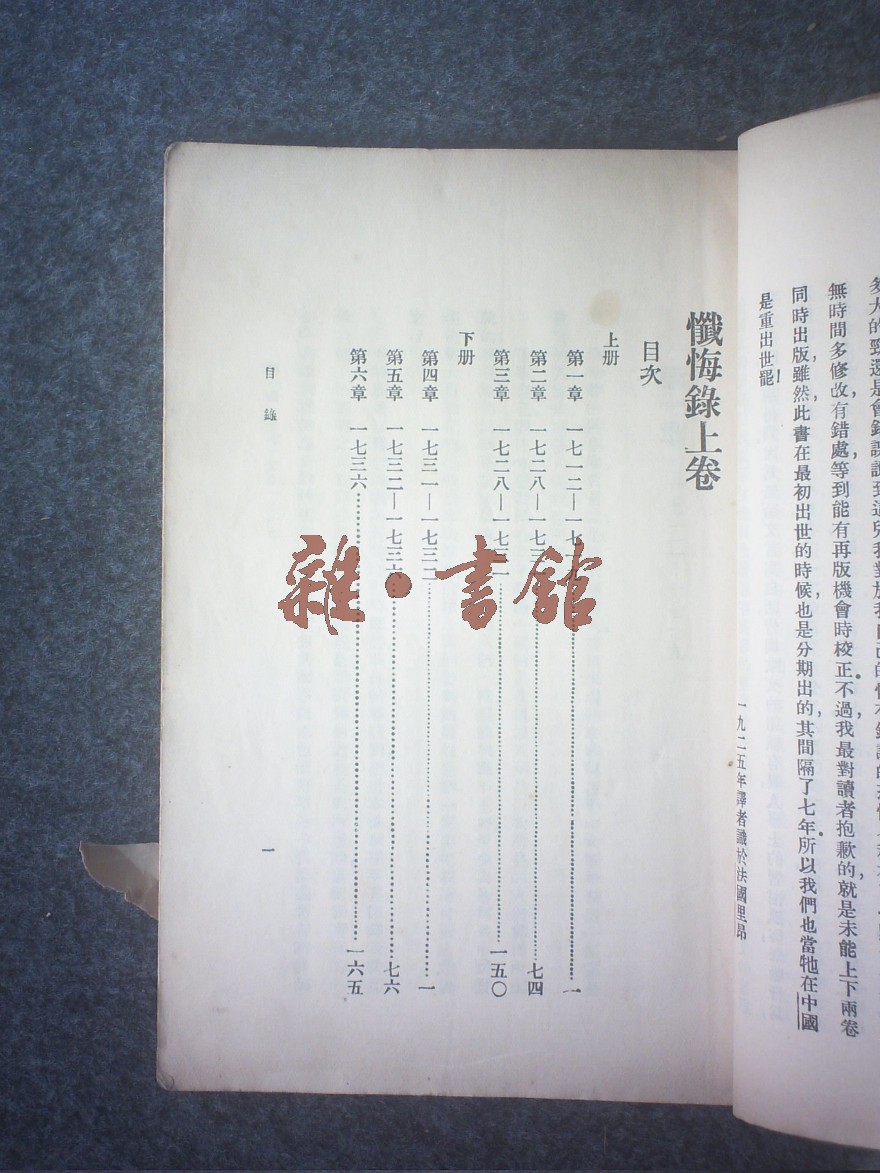 無時間多修改，有錯處，等到能有再版機會時校正。不過我最對讀者抱歉的，就是未能上下兩卷
同時出版，雖然此書在最初出世的時候，也是分期出的，其間隔了七年。所以我們也當牠在中國
是重出世罷！
一九二五年譯者識於法國里昂
懺悔錄上卷
目次
上册
第一章 一七一二—一七……一
第二章 一七二八—一七三……七四
第三章 一七二八—一七三一……一五〇
下册
第四章 一七三一—一七三二……一
第五章 一七三二—一七三六……七六
第六章 一七三六……一六五
目錄
一
雜·書館